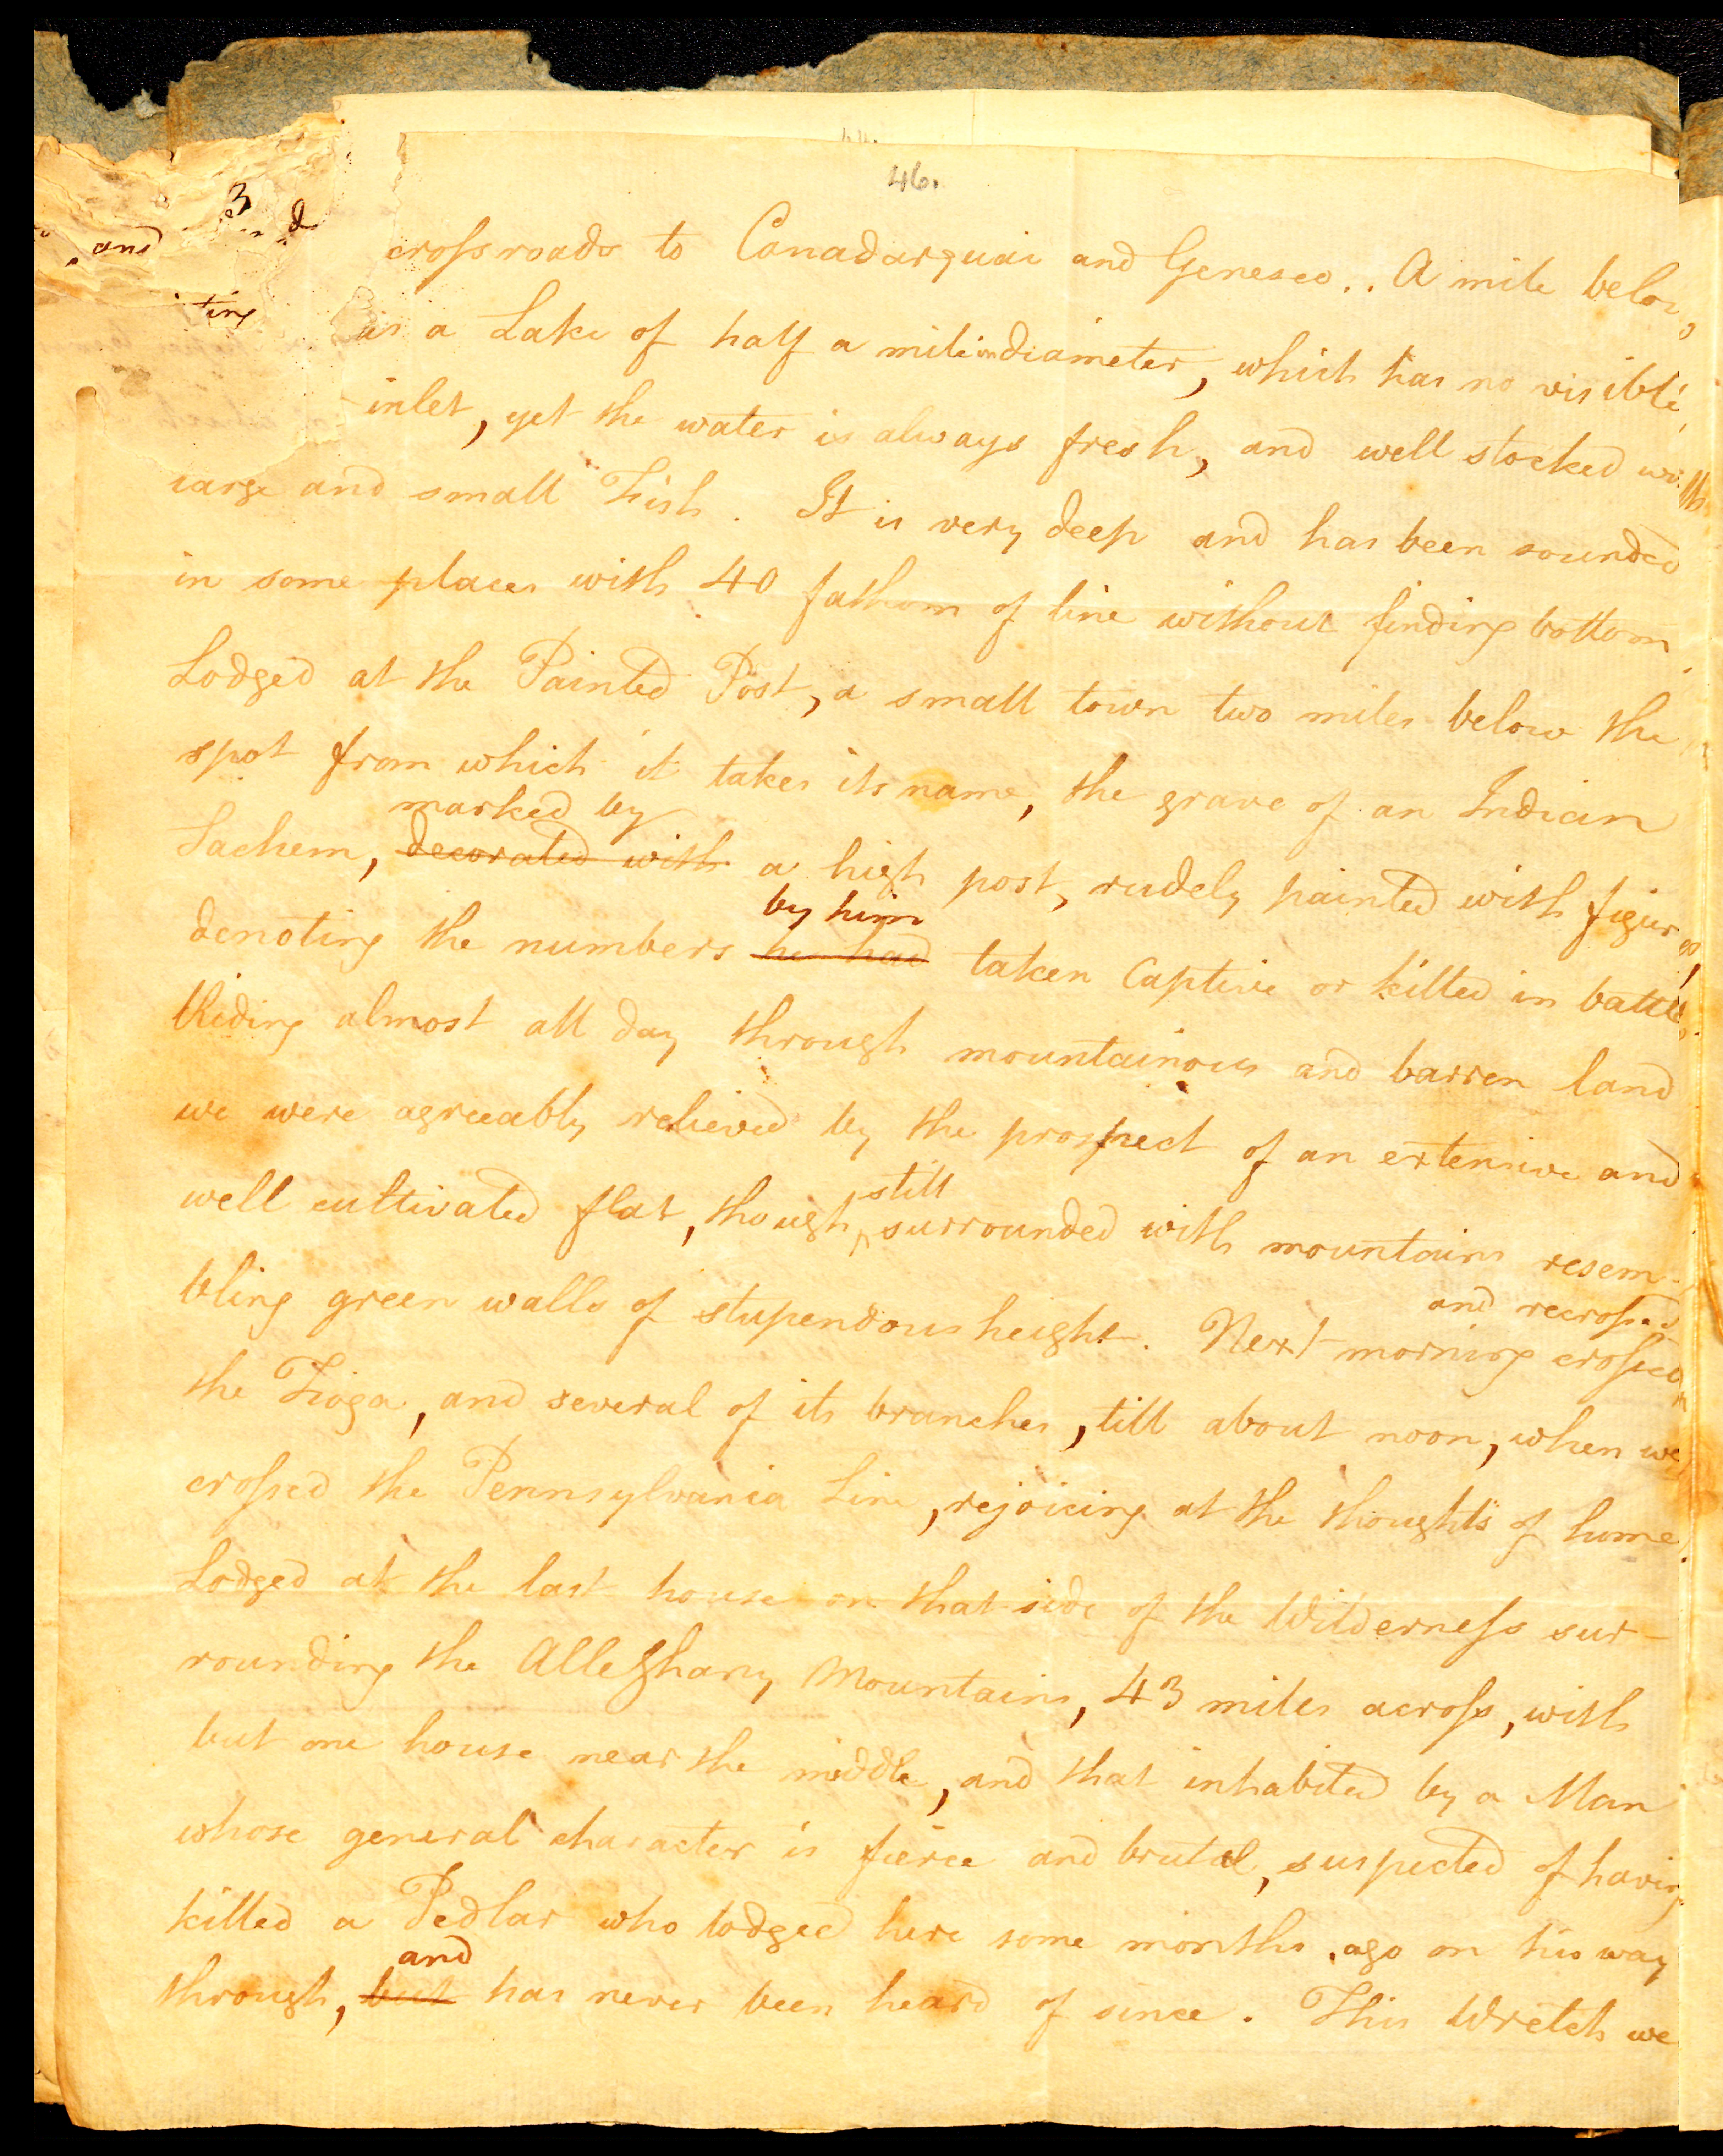 46.
crossroads to Canadarquai and Geneseo.. A mile below,
is a Lake of half a mile in diameter, which has no visible
inlet, yet the water is always fresh, and well stocked with
large and small Fish. It is very deep and has been sounded
in some places with 40 fathom of line without finding bottom.
Lodged at the Painted Post, a small town two miles below the
spot from which it takes its name, the grave of an Indian
marked by
Sachem, decorated with a high post, rudely painted with figures,
by him
denoting the numbers he had taken Captive or killed in battle.
Riding almost all day through mountainous and barren land
we were agreeably relieved by the prospect of an extensive and
still
well cultivated flat, though surrounded with mountains resem-
bling green walls of stupendous height. Next morning crossed
and recrossed
the Tioga, and several of its branches, till about noon, when we
crossed the Pennsylvania Line, rejoicing at the thoughts of home.
Lodged at the last house on that side of the Wilderness sur-
rounding the Alleghany Mountains, 43 miles across, with
but one house near the middle, and that inhabited by a Man
whose general character is fierce and brutal, suspected of having
killed a Pedlar who lodged here some months ago on his way
and
through, but has never been heard of since. This Wretch we
and
3
d
ting